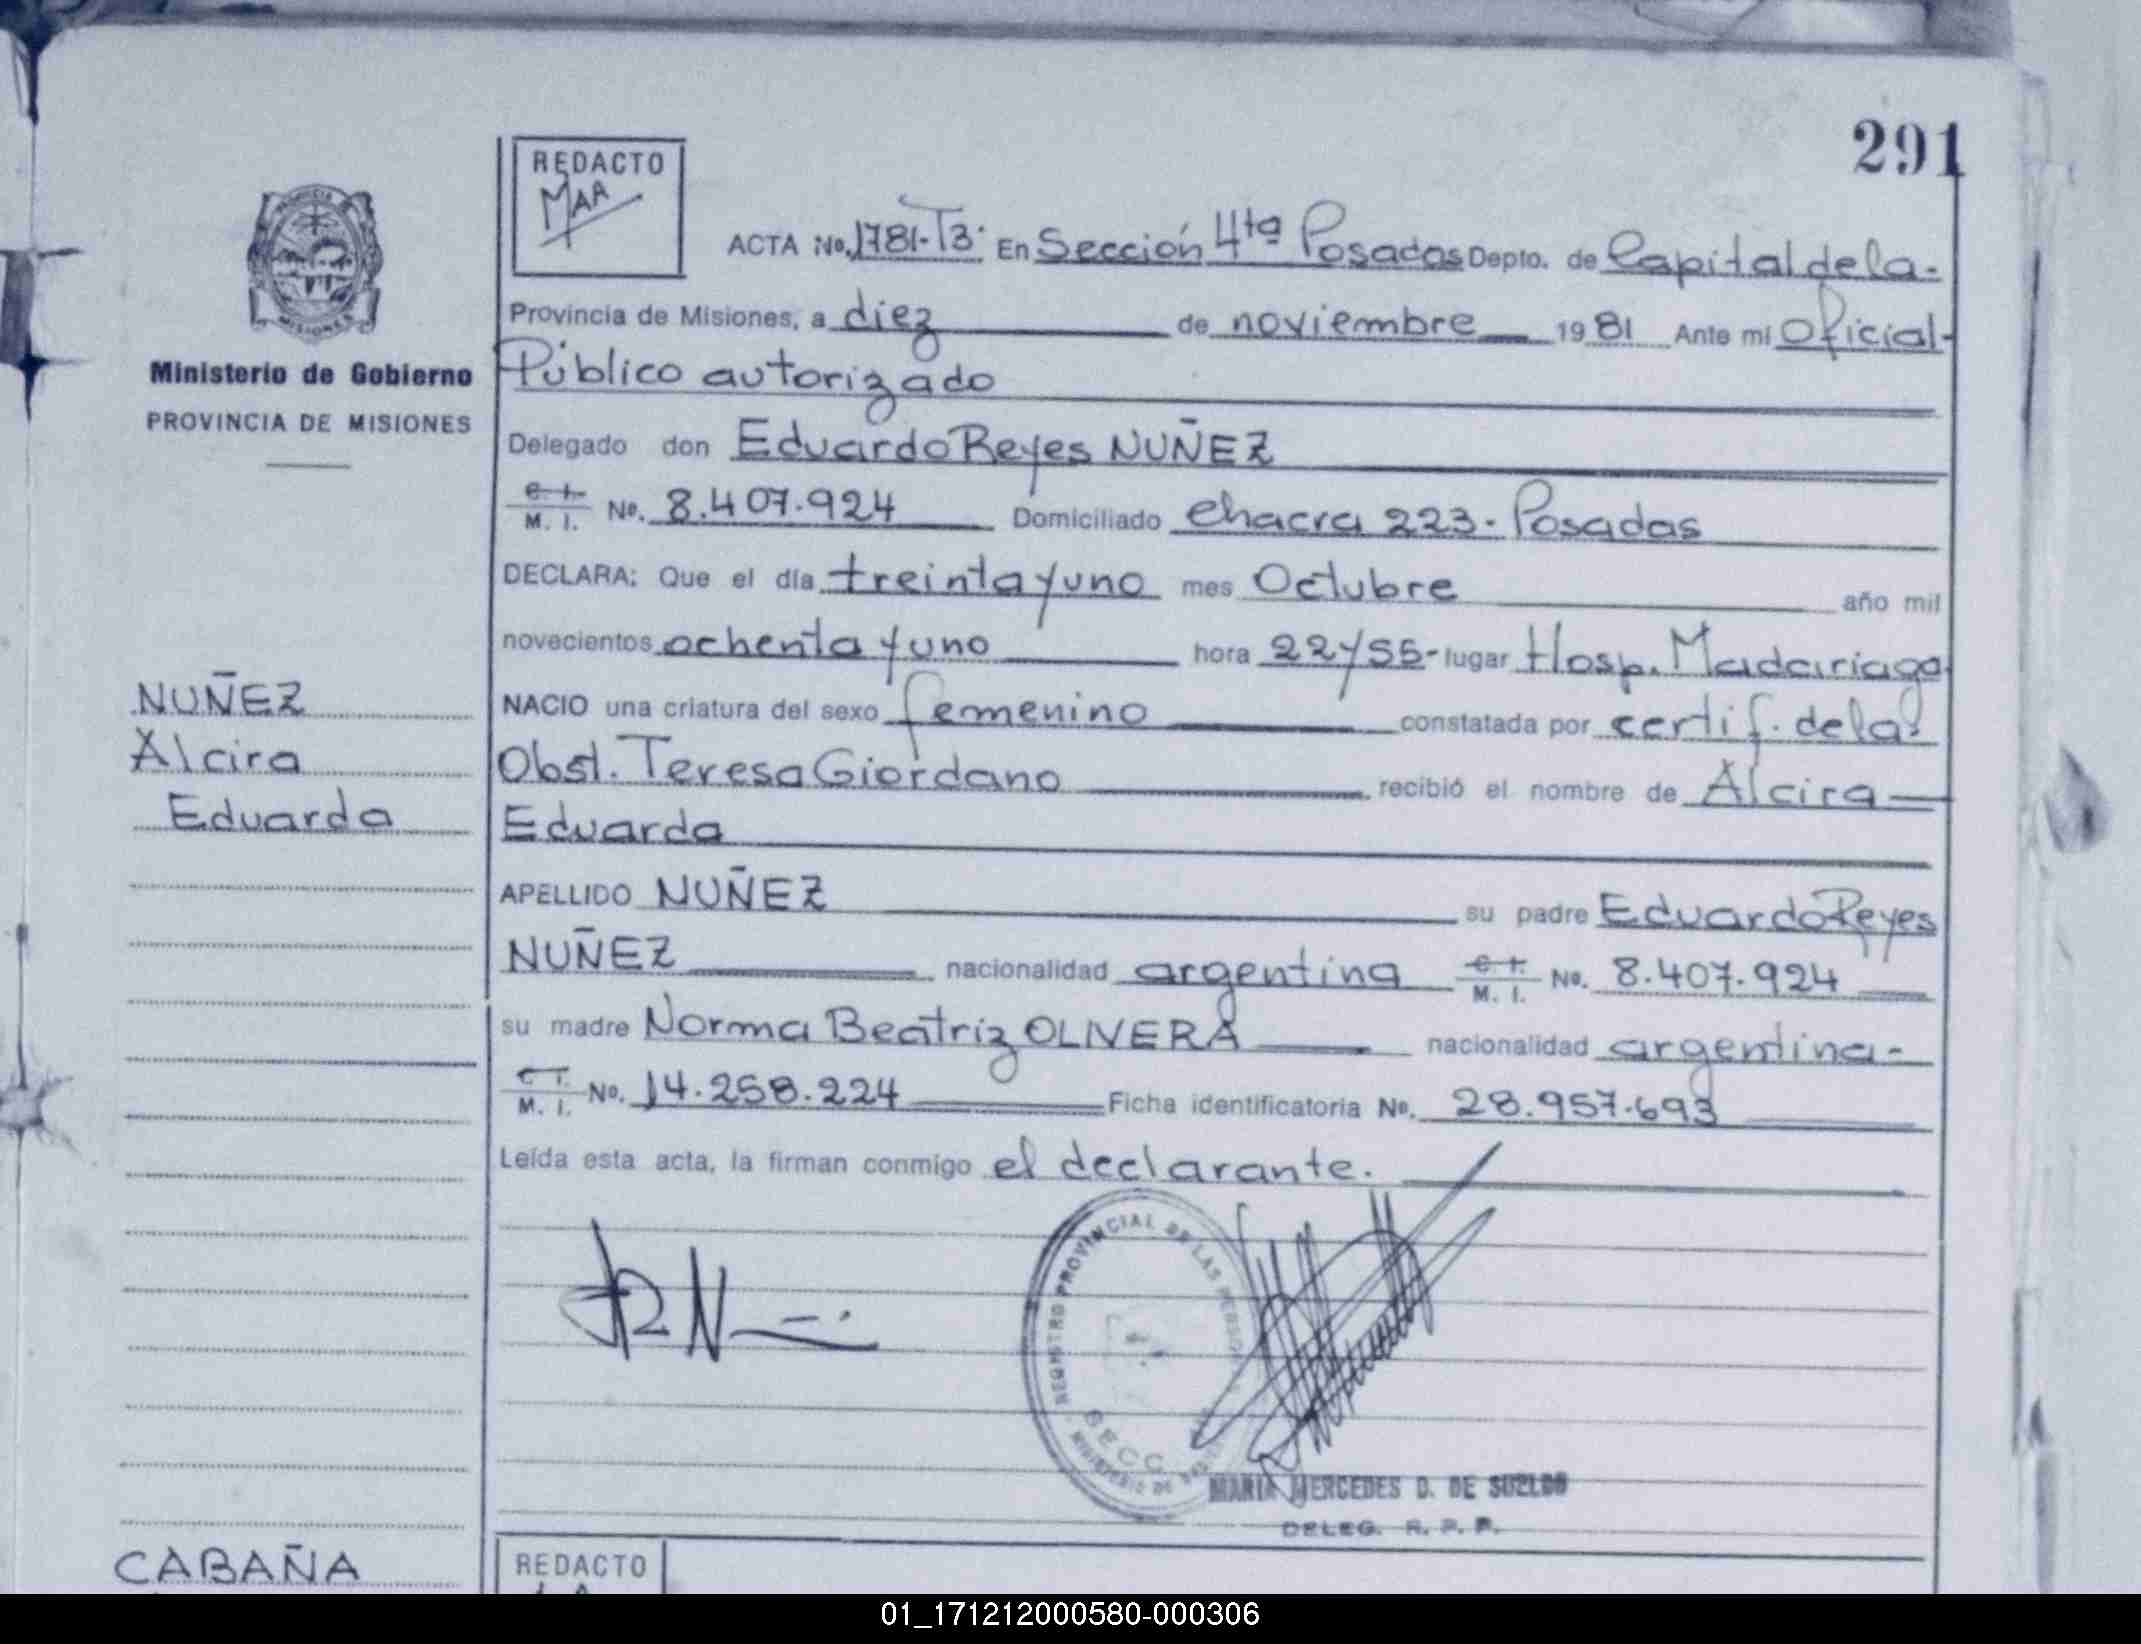 291
REDACTO
MAA
ACTA No. 1781-T3· En Sección 4ta Posadas Depto. de Capital de la-
Provincia de Misiones, a diez de noviembre 1981 Ante mi Oficial-
Público autorizado
Ministerio de Gobierno
PROVINCIA DE MISIONES
Delegado don Eduardo Reyes NUÑEZ
C. I. M. I. No. 8.407.924 Domiciliado chacra 223- Posadas
DECLARA: Que el día treinta y uno mes Octubre año mil
novecientos ochenta y uno hora 22y55- lugar Hosp. Madariaga
NUÑEZ
Alcira
Eduarda
NACIO una criatura del sexo femenino constatada por certif. de la
Obst. Teresa Giordano recibió el nombre de Alcira
Eduarda
APELLIDO NUÑEZ su padre Eduardo Reyes
NUÑEZ nacionalidad argentina C. I. M. I. No. 8.407.924
su madre Norma Beatriz OLIVERA nacionalidad argentina-
C. I. M. I. No. 14.258.224 Ficha identificatoria No. 28.957.693
Leída esta acta, la firman conmigo el declarante.
REGISTRO PROVINCIAL DE LAS
SECC
MARIA MERCEDES D. DE SUELDO
DELEG. R. P. P.
CABAÑA
REDACTO
01_171212000580-000306